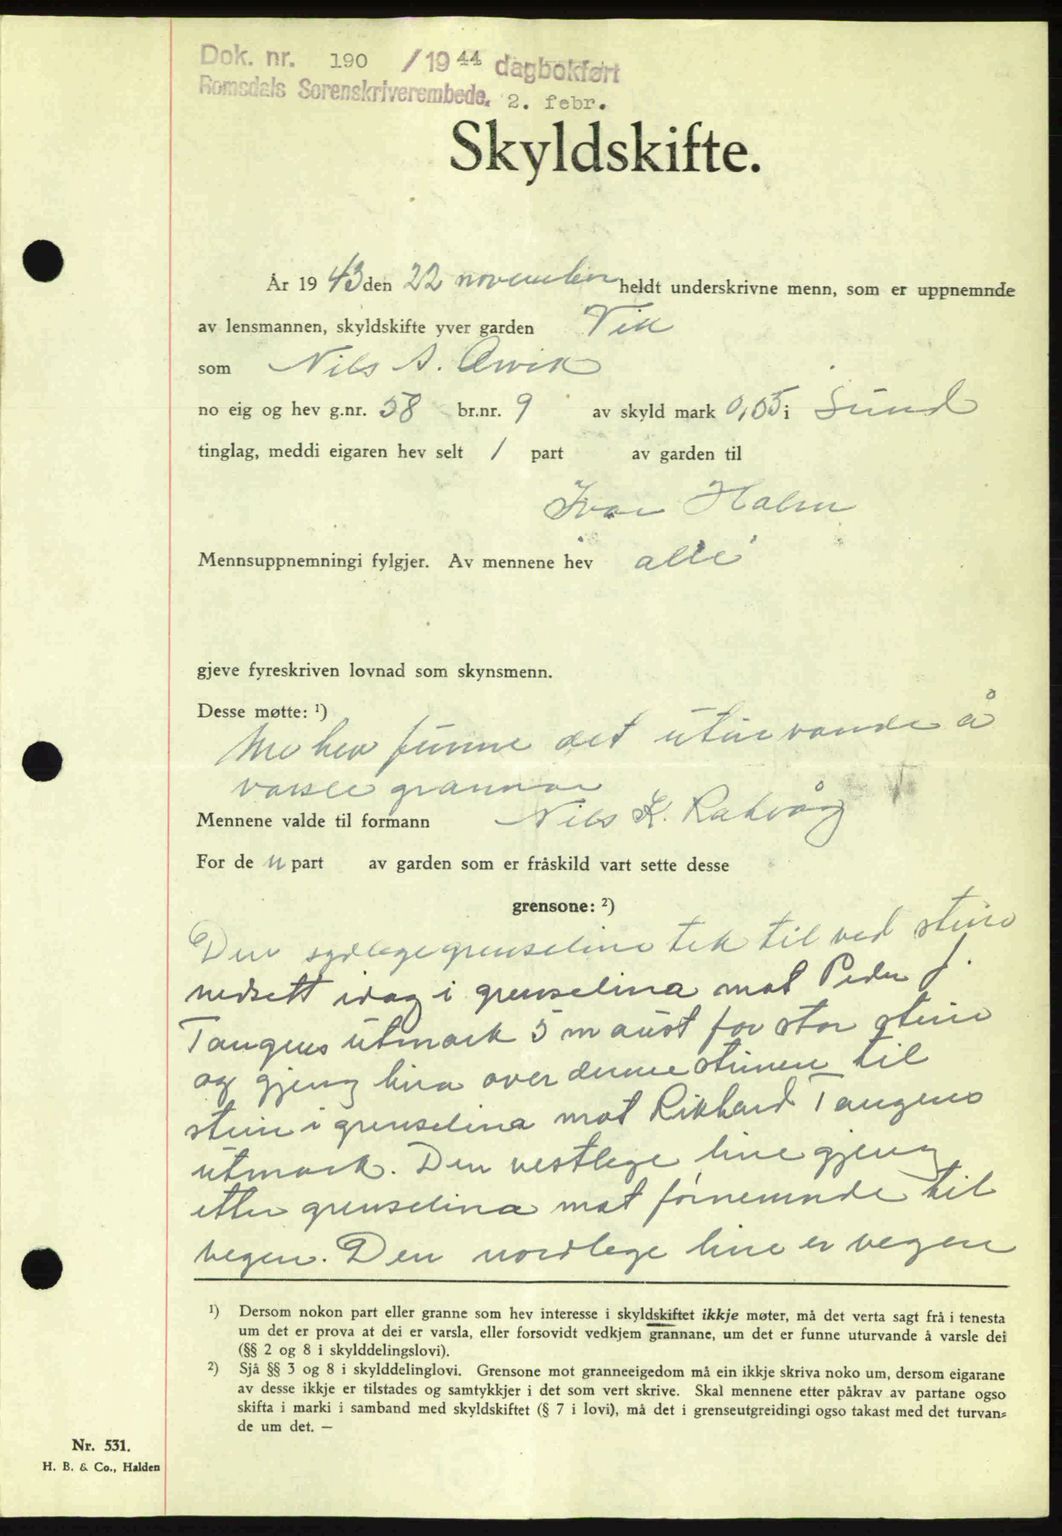 Dok. nr. 190 /1944 dagbokført
Romsdals Sorenskriverembede. 2. febr.
Skyldskifte.
År 1943 den 22 november heldt underskrivne menn, som er uppnemnde
av lensmannen, skyldskifte yver garden Vik
som Nils A. Qwik
no eig og hev g.nr. 58 br.nr. 9 av skyld mark 0,55 i Sund
tinglag, meddi eigaren hev selt 1 part av garden til
Ivar Halsn
Mennsuppnemningi fylgjer. Av mennene hev alle
gjeve fyreskriven lovnad som skynsmenn.
Desse møtte: ¹)
Me hev funne det uturvande å
varsle grannar
Mennene valde til formann Nils K. Rakvåg
For de n part av garden som er fråskild vart sette desse
grensone: ²)
Den sydlege grenselina tek til ved stein
nedsett idag i grenselina mot Peder J.
Tangens utmark 5 m aust for stor stein
og gjeng lina over denne steinen til
stein i grenselina mot Rikhard Tangens
utmark. Den vestlege line gjeng
etter grenselina mot fornemnde til
vegen. Den nordlege line er vegen
¹) Dersom nokon part eller granne som hev interesse i skyldskiftet ikkje møter, må det verta sagt frå i tenesta
um det er prova at dei er varsla, eller forsovidt vedkjem grannane, um det er funne uturvande å varsle dei
(§§ 2 og 8 i skylddelingslovi).
²) Sjå §§ 3 og 8 i skylddelinglovi. Grensone mot granneeigedom må ein ikkje skriva noko um, dersom eigarane
av desse ikkje er tilstades og samtykkjer i det som vert skrive. Skal mennene etter påkrav av partane ogso
skifta i marki i samband med skyldskiftet (§ 7 i lovi), må det i grenseutgreidingi ogso takast med det turvan=
de um det. —
Nr. 531.
H. B. & Co., Halden